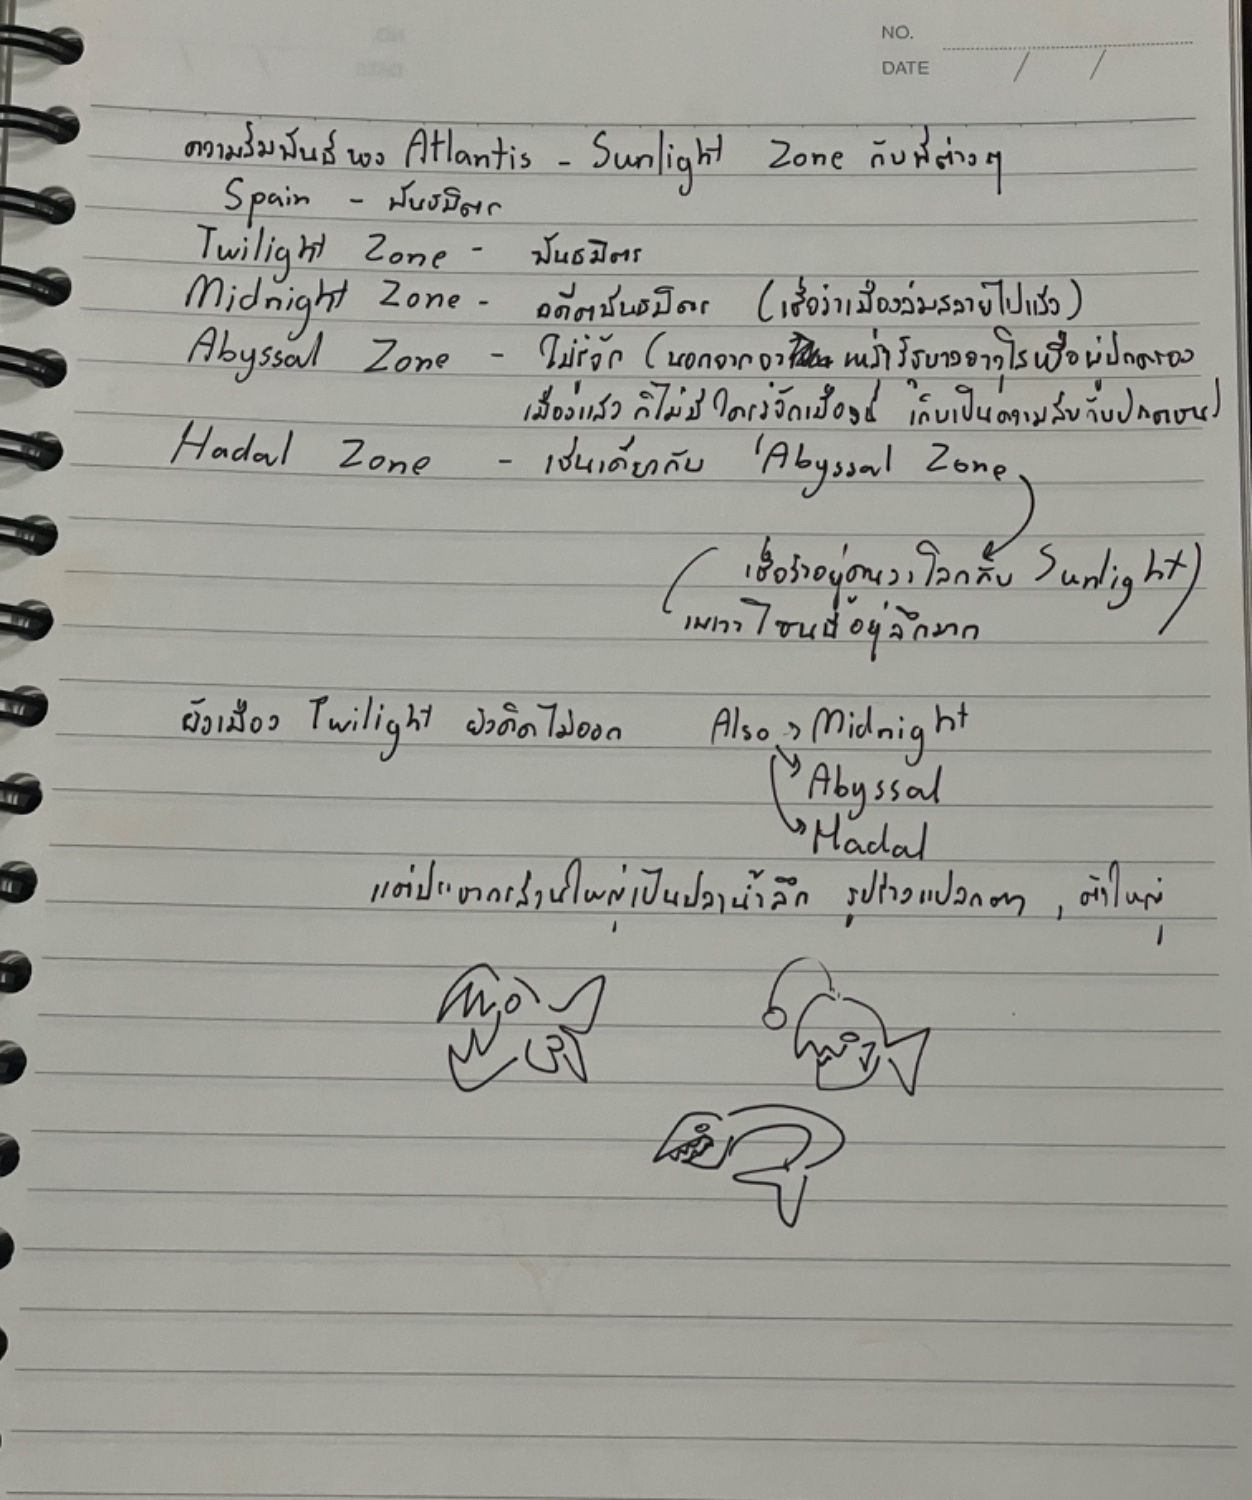 NO.
DATE / /
ความสัมพันธ์ของ Atlantis - Sunlight Zone กับที่ต่างๆ
Spain - พันธมิตร
Twilight Zone - พันธมิตร
Midnight Zone - อดีตพันธมิตร (เชื่อว่าเมืองล่มสลายไปแล้ว)
Abyssal Zone - ไม่รู้จัก (นอกจาก เหล่า หรือผู้ปกครอง
เมืองแล้ว ก็ไม่มีใครรู้จักเมืองนี้ เก็บเป็นความลับกับปกตชน)
Hadal Zone - เช่นเดียวกับ Abyssal Zone
(เชื่อว่าอยู่คนละโลกกับ Sunlight)
เพราะโซนนี้อยู่ลึกมาก
ผังเมือง Twilight ยังคิดไม่ออก Also → Midnight
Abyssal
Hadal
แต่ประชากรส่วนใหญ่เป็นปลาน้ำลึก รูปร่างแปลกตา , ตัวใหญ่